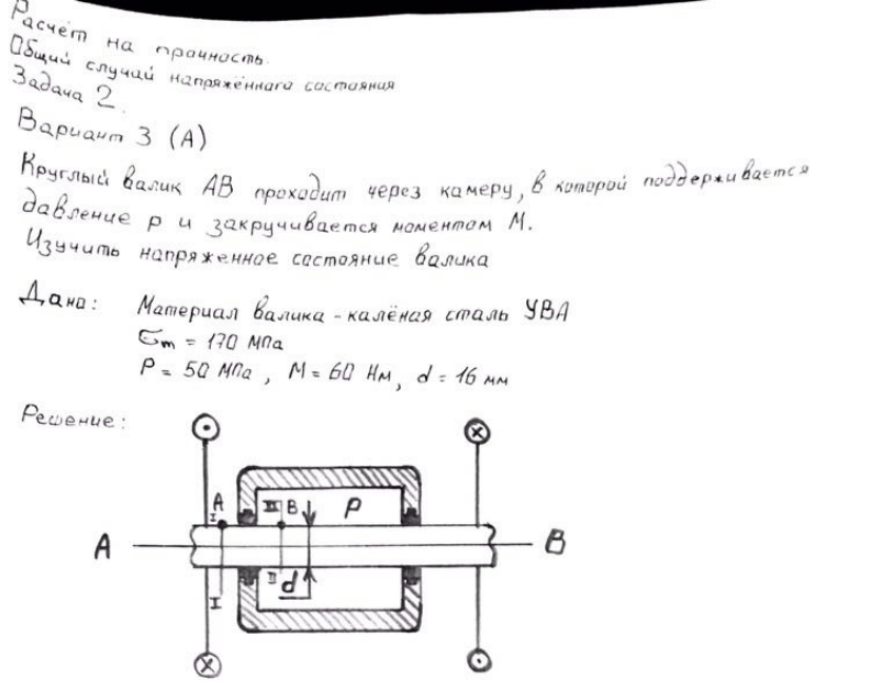 Расчёт на прочность.
Общий случай напряжённого состояния
Задача 2.
Вариант 3 (А)
Круглый валик АВ проходит через камеру, в которой поддерживается
давление р и закручивается моментом М.
Изучить напряженное состояние валика
Дано: Материал валика - калёная сталь УВА
σт = 170 МПа
P = 50 МПа, М = 60 Нм, d = 16 мм
Решение:
A I III B P
A B
I II d